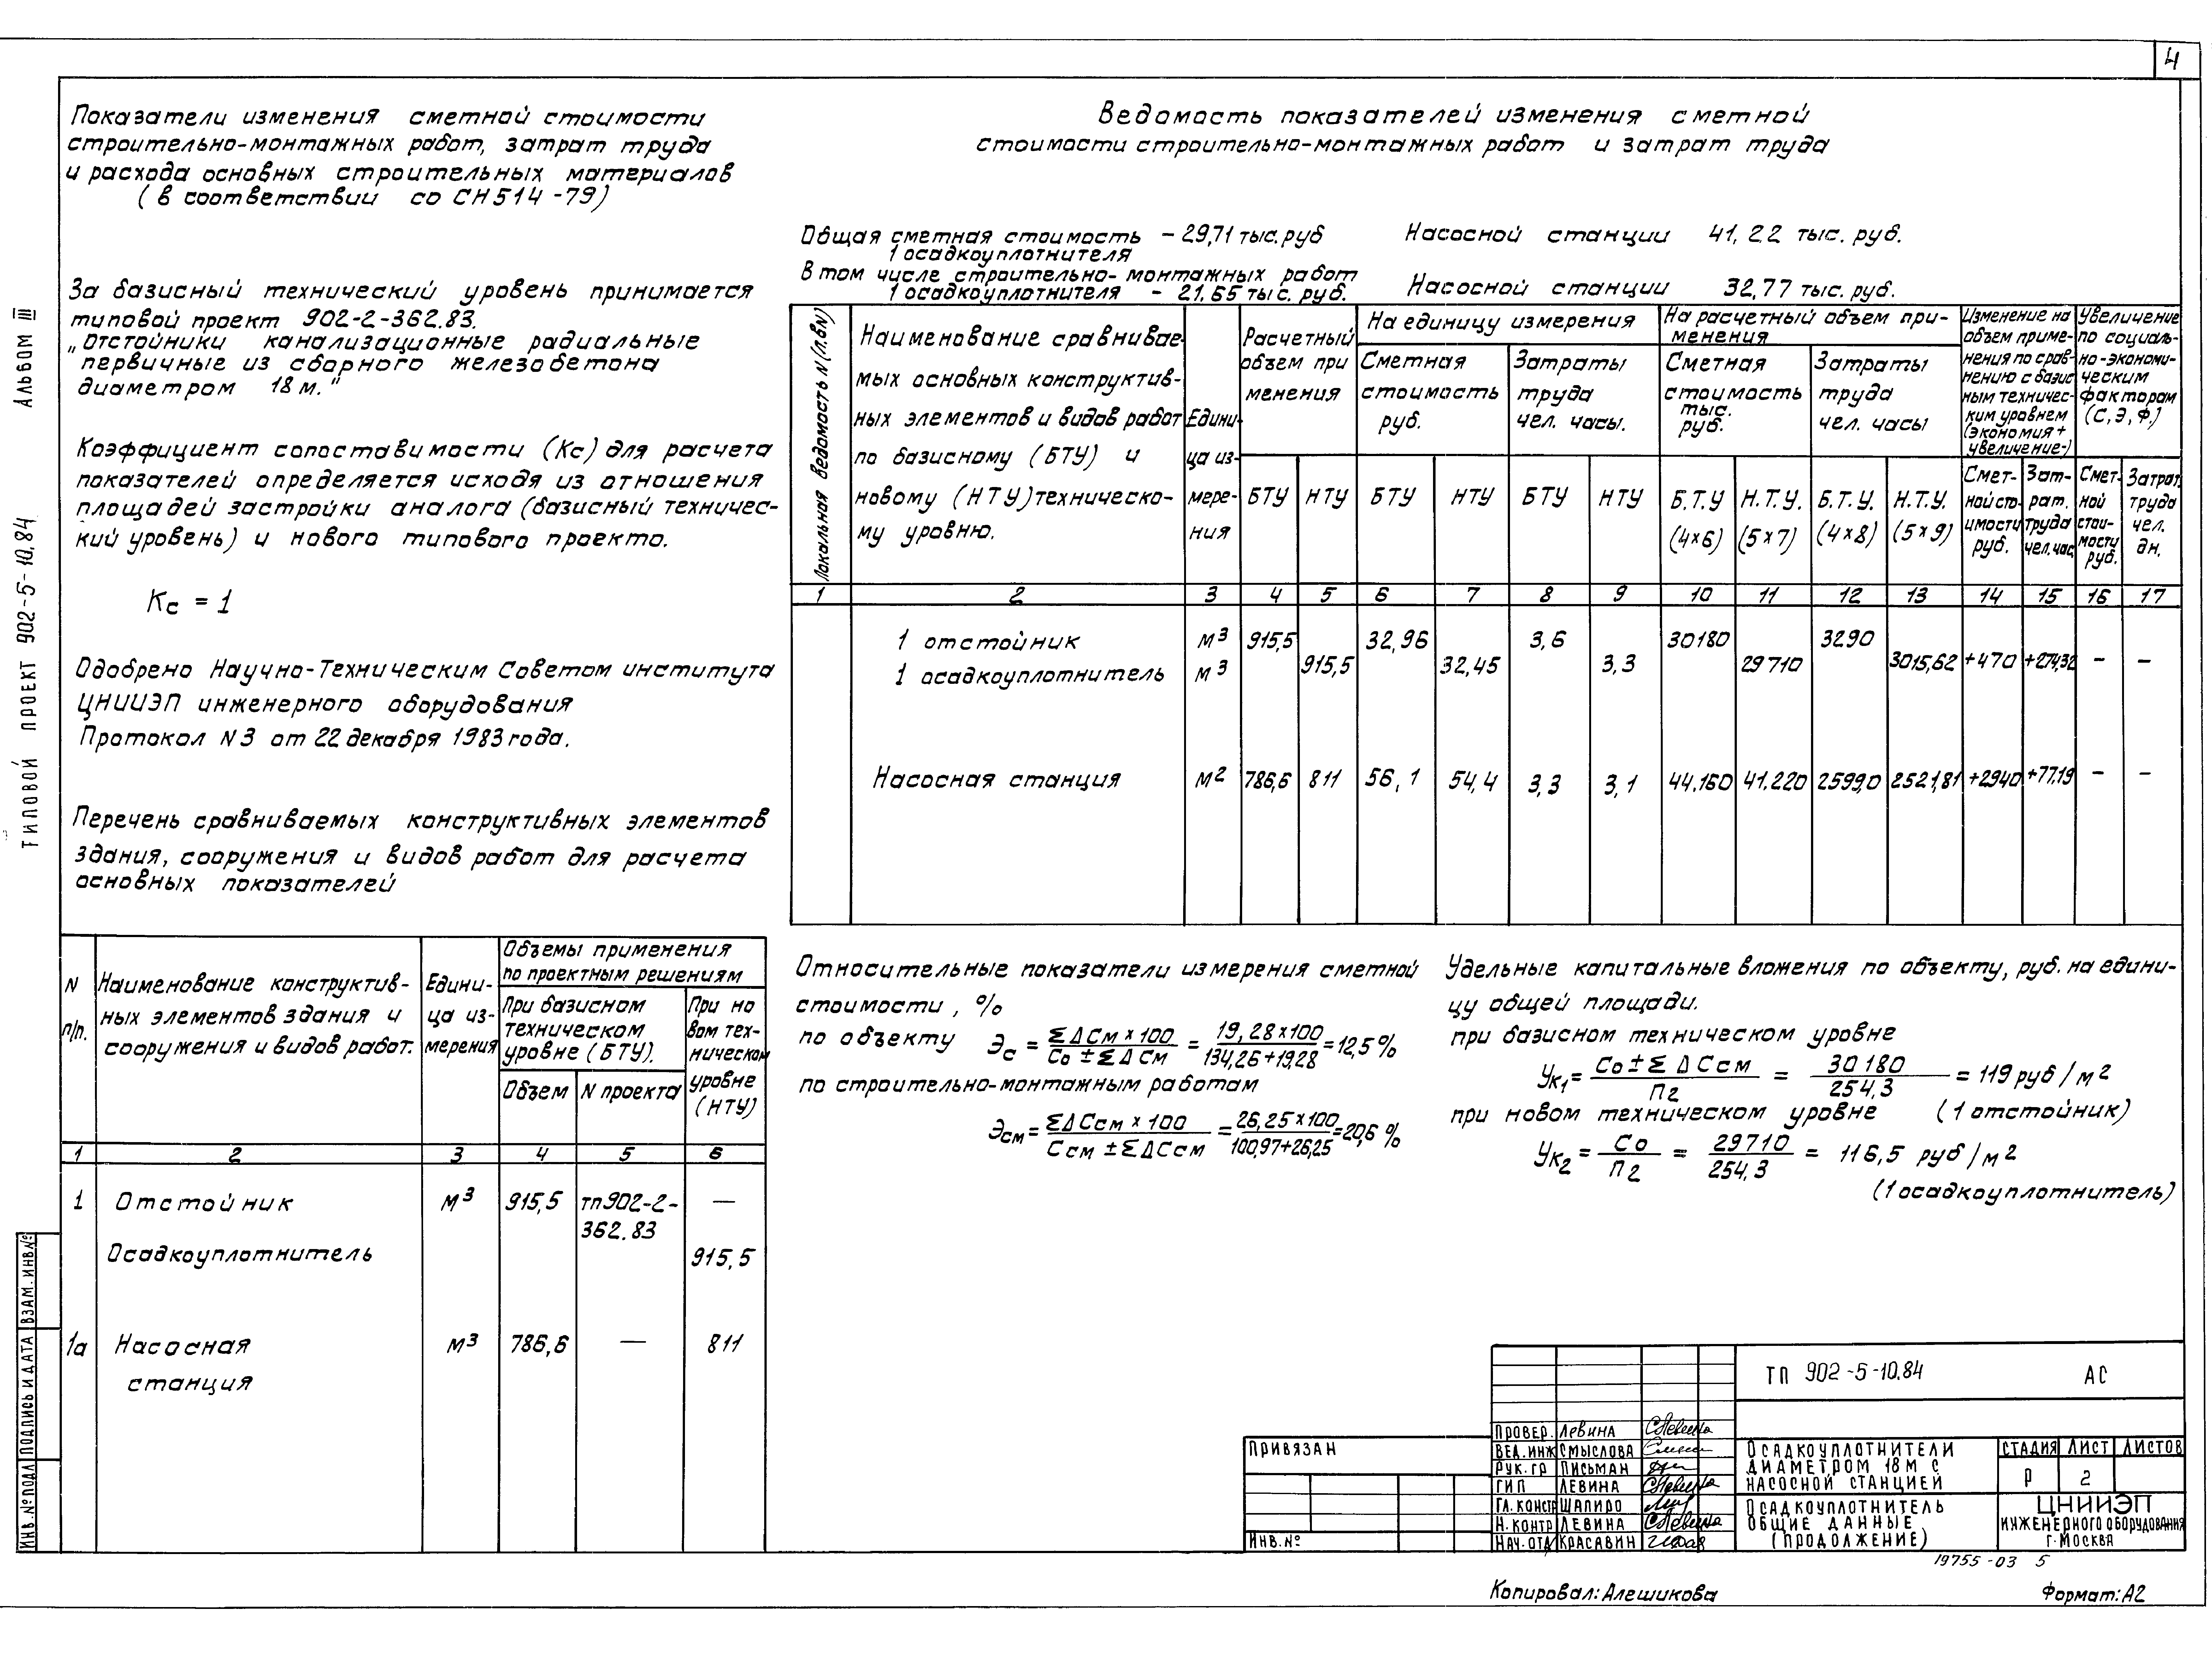 4
Показатели изменения сметной стоимости
строительно-монтажных работ, затрат труда
и расхода основных строительных материалов
(в соответствии со СН 514-79)
За базисный технический уровень принимается
типовой проект 902-2-362.83.
„Отстойники канализационные радиальные
первичные из сборного железобетона
диаметром 18 м."
Коэффициент сопоставимости (Кс) для расчета
показателей определяется исходя из отношения
площадей застройки аналога (базисный техничес-
кий уровень) и нового типового проекта.
Кс = 1
Одобрено Научно-Техническим Советом института
ЦНИИЭП инженерного оборудования
Протокол N3 от 22 декабря 1983 года.
Перечень сравниваемых конструктивных элементов
здания, сооружения и видов работ для расчета
основных показателей
N п/п.
Наименование конструктив-
ных элементов здания и
сооружения и видов работ.
Едини-
ца из-
мерения
Объемы применения
по проектным решениям
При базисном
техническом
уровне (БТУ).
При но
вом тех-
ническом
уровне
(НТУ)
Объем
N проекта
1 2 3 4 5 6
1 Отстойник м3 915,5 тп902-2- —
362.83
Осадкоуплотнитель 915,5
1а Насосная м3 786,6 — 811
станция
Ведомость показателей изменения сметной
стоимости строительно-монтажных работ и затрат труда
Общая сметная стоимость - 29,71 тыс. руб Насосной станции 41,22 тыс. руб.
1 осадкоуплотнителя
В том числе строительно-монтажных работ
1 осадкоуплотнителя - 21,65 тыс. руб. Насосной станции 32,77 тыс. руб.
Локальная ведомость N (л.вN)
Наименование сравнивае-
мых основных конструктив-
ных элементов и видов работ
по базисному (БТУ) и
новому (НТУ) техническо-
му уровню.
Едини-
ца из-
мере-
ния
Расчетный
объем при
менения
На единицу измерения
Сметная
стоимость
руб.
Затраты
труда
чел. часы.
На расчетный объем при-
менения
Сметная
стоимость
тыс.
руб.
Затраты
труда
чел. часы
Изменение на
объем приме-
нения по срав-
нению с базис
ным техничес-
ким уровнем
(экономия +
увеличение-)
Увеличение
по социаль-
но-экономи-
ческим
факторам
(С, Э, Ф.)
БТУ НТУ БТУ НТУ БТУ НТУ Б.Т.У. Н.Т.У. Б.Т.У. Н.Т.У.
(4×6) (5×7) (4×8) (5×9)
Смет-
ной сто-
имости
руб.
Зат-
рат.
труда
чел.час
Смет-
ной
стои-
мости
руб.
Затрат
труда
чел.
дн.
1 2 3 4 5 6 7 8 9 10 11 12 13 14 15 16 17
1 отстойник м3 915,5 32,96 3,6 30180 3290
1 осадкоуплотнитель м3 915,5 32,45 3,3 29710 3015,62 +470 +274,32 – –
Насосная станция м2 786,6 811 56,1 54,4 3,3 3,1 44.160 41.220 2599,0 2521,81 +2940 +77,19 – –
Относительные показатели измерения сметной
стоимости, %
по объекту Эс = ΣΔСм × 100 / Со ± ΣΔСм = 19,28×100 / 134,26+19,28 = 12,5%
по строительно-монтажным работам
Эсм = ΣΔСсм × 100 / Ссм ± ΣΔСсм = 26,25×100 / 100,97+26,25 = 20,6 %
Удельные капитальные вложения по объекту, руб. на едини-
цу общей площади.
при базисном техническом уровне
Ук1 = Со ± ΣΔСсм / П2 = 30180 / 254,3 = 119 руб/м2
при новом техническом уровне (1 отстойник)
Ук2 = Со / П2 = 29710 / 254,3 = 116,5 руб/м2
(1 осадкоуплотнитель)
Альбом III
Типовой проект 902-5-10.84
Взам. инв.№
Подпись и дата
Инв.№ подл
Привязан
Инв.№
Провер. Левина
Вед.инж Смыслова
Рук.гр Письман
ГИП Левина
Гл.констр Шапиро
Н.контр Левина
Нач.отд Красавин
ТП 902-5-10.84 АС
Осадкоуплотнители
диаметром 18м с
насосной станцией
Стадия Лист Листов
Р 2
Осадкоуплотнитель
Общие данные
(продолжение)
ЦНИИЭП
инженерного оборудования
г.Москва
19755-03 5
Копировал: Алешикова Формат: А2